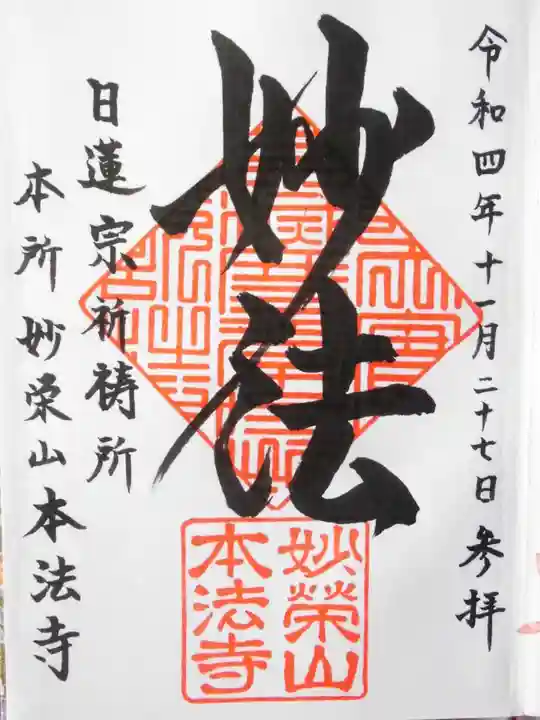 令和四年十一月二十七日参拝
妙法
妙榮山
本法寺
日蓮宗祈祷所
本所妙栄山本法寺